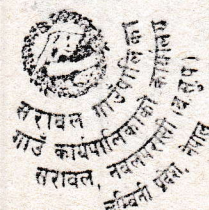 सरावल गाउँपालिका
गाउँ कार्यपालिकाको कार्यालय
सरावल, नवलपरासी (ब.सु.प)
लुम्बिनी प्रदेश, नेपाल